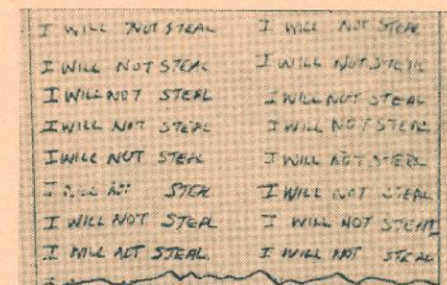 I WILL NOT STEAL I WILL NOT STEAL
I WILL NOT STEAL I WILL NOT STEAL
I WILL NOT STEAL I WILL NOT STEAL
I WILL NOT STEAL I WILL NOT STEAL
I WILL NOT STEAL I WILL NOT STEAL
I WILL NOT STEAL I WILL NOT STEAL
I WILL NOT STEAL I WILL NOT STEAL
I WILL NOT STEAL I WILL NOT STEAL